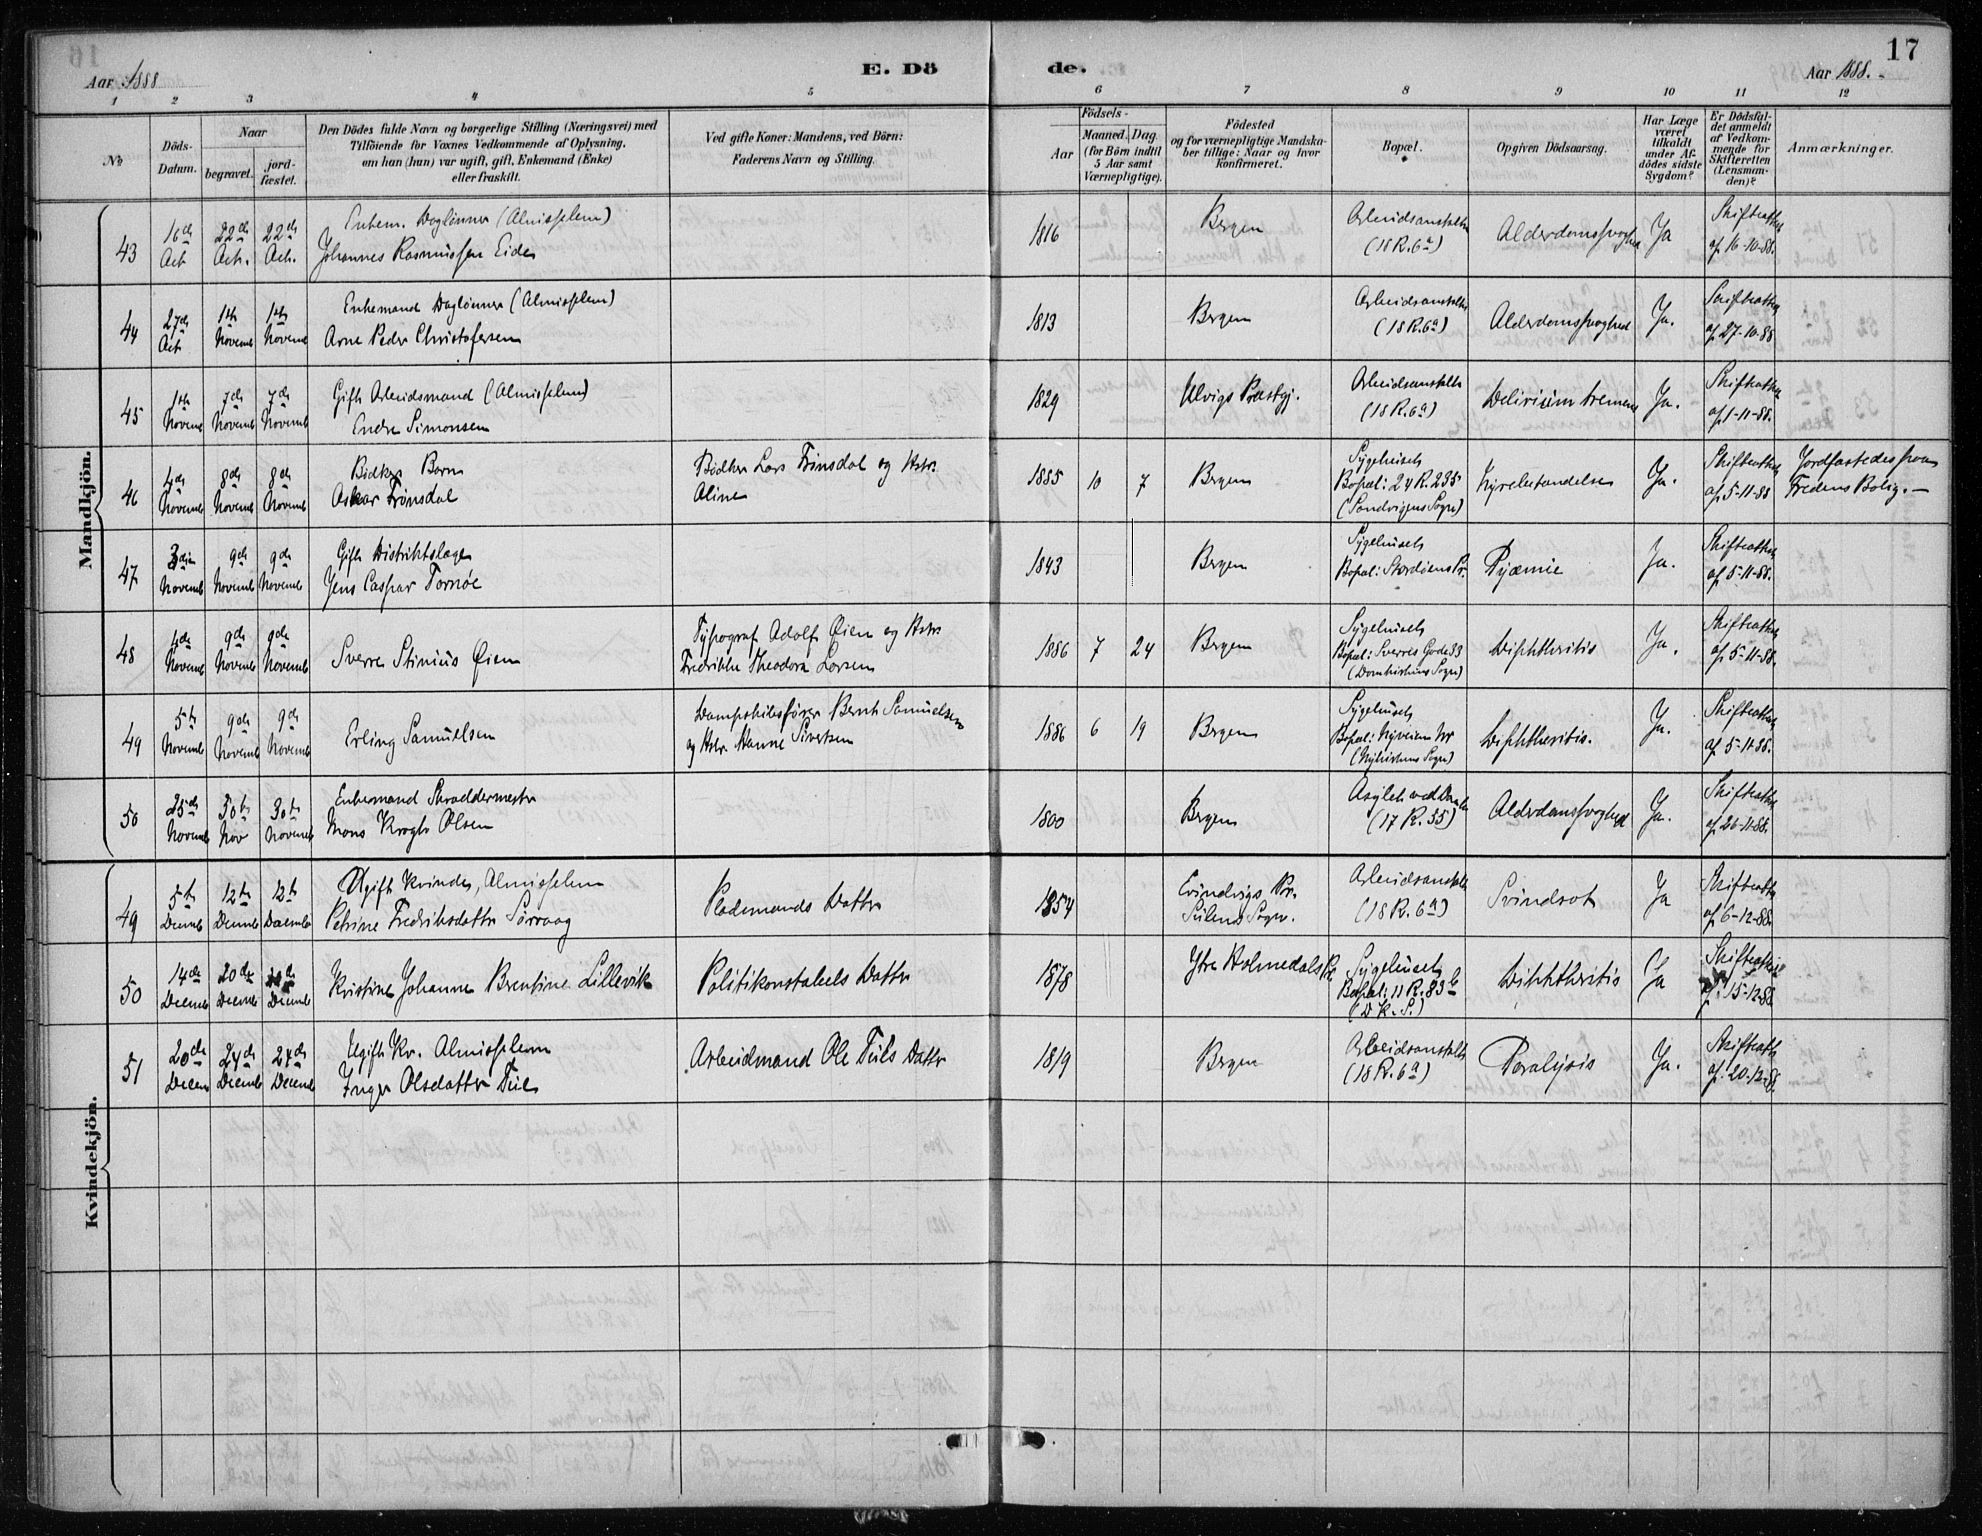 17
Aar 1888
E. Dö
de.
Aar 1888.
1 2 3 4 5 6 7 8 9 10 11 12
No
Döds-Datum.
Naar
begravet.
jord-fæstet.
Den Dödes fulde Navn og borgerlige Stilling (Næringsvei) med
Tilföiende for Voxnes Vedkommende af Oplysning,
om han (hun) var ugift, gift, Enkemand (Enke)
eller fraskilt.
Ved gifte Koner: Mandens, ved Börn:
Faderens Navn og Stilling.
Födsels-
Aar
Maaned.
Dag.
(for Börn indtil
5 Aar samt
Værnepligtige).
Födested
og for værnepligtige Mandska-
ber tillige: Naar og hvor
konfirmeret.
Bopæl.
Opgiven Dödsaarsag.
Har Læge
været
tilkaldt
under Af-
dödes sidste
Sygdom?
Er Dödsfal-
det anmeldt
af Vedkom-
mende for
Skifteretten
(Lensman-
den)?
Anmærkninger.
Mandkjön.
43 16de Oct 22de Oct. 22de Oct. Enkem. Daglønner (Almisselem)
Johannes Rasmussen Eide 1816 Bergen Arbeidsanstalten
(18 R. 6a) Alderdomssvaghed Ja Skifteretten
af 16-10-88.
44 27de Oct 1ste Novemb 1ste Novemb Enkemand Daglønner (Almisselem)
Arne Peder Christofersen 1813 Bergen Arbeidsanstalten
(18 R. 6a) Alderdomssvaghed Ja. Skifteretten
af 27-10-88
45 1ste Novemb 7de Novemb 7de Novemb Gift Arbeidsmand (Almisselem)
Endre Simonsen 1829 Ulvigs Præstgj. Arbeidsanstalten
(18 R. 6a) Delirium tremens Ja. Skifteretten
af 1-11-88.
46 4de Novemb 8de Novemb 8de Novemb Bødkers Barn
Askar Trønsdal Bødker Lars Trønsdal og Hstr.
Aline 1885 10 7 Bergen Sygehuset
Bopæl: 24 R. 235
(Sandvigens Sogn) Nyrebetændelse Ja. Skifteretten
af 5-11-88 Jordfæstedes fra
Fredens Bolig. —
47 3die Novemb 9de Novemb 9de Novemb Gift Distriktslæge
Jens Caspar Tornøe 1843 Bergen Sygehuset
Bopæl: Stordøens Pr. Pyæmie Ja. Skifteretten
af 5-11-88.
48 4de Novemb 9de Novemb 9de Novemb Sverre Stinius Øien Typograf Adolf Øien og Hstr.
Fredrikke Theodora Larsen 1886 7 24 Bergen Sygehuset
Bopæl: Sverres Gade 33
(Domkirkens Sogn) Diphtheritis Ja. Skifteretten
af 5-11-88.
49 5te Novemb 9de Novemb 9de Novemb Erling Samuelsen Dampskibsfører Bernt Samuelsen
og Hstr. Hanne Sivertsen 1886 6 19 Bergen Sygehuset
Bopæl: Nyveien
(Nykirkens Sogn) Diphtheritis. Ja. Skifteretten
af 5-11-88.
50 25de Novemb 30te Nov 30te Novemb Enkemand Skræddermester
Mons Krogh Olsen 1800 Bergen Asylet ved
(17 R. 35) Alderdomssvaghed Ja. Skifteretten
af 26-11-88.
Kvindekjön.
49 5te Decemb 12te Decemb 12te Decemb Ugift Kvinde, Almisselem
Petrine Fredriksdatter Sørvaag Pladsmands Datter 1854 Evindvigs Pr.
Sulens Sogn. Arbeidsanstalten
(18 R. 6a) Svindsot Ja Skifteretten
af 6-12-88.
50 14de Decemb 20de Decemb Decemb Kristine Johanne Berntine Lillevik Politikonstabels Datter 1878 Ytre Holmedals Pr. Sygehuset
Bopæl: 11 R. 83b
(D. K. S.) Diphtheritis Ja Skifteretten
af 15-12-88.
51 20de Decem 24de Decemb 24de Decemb Ugift Kv. Almisselem
Inger Olsdatter Tuls Arbeidmand Ole Tuls Datter 1819 Bergen Arbeidsanstalten
(18 R. 6a) Paralysis Ja. Skifterett
af 20-12-88.